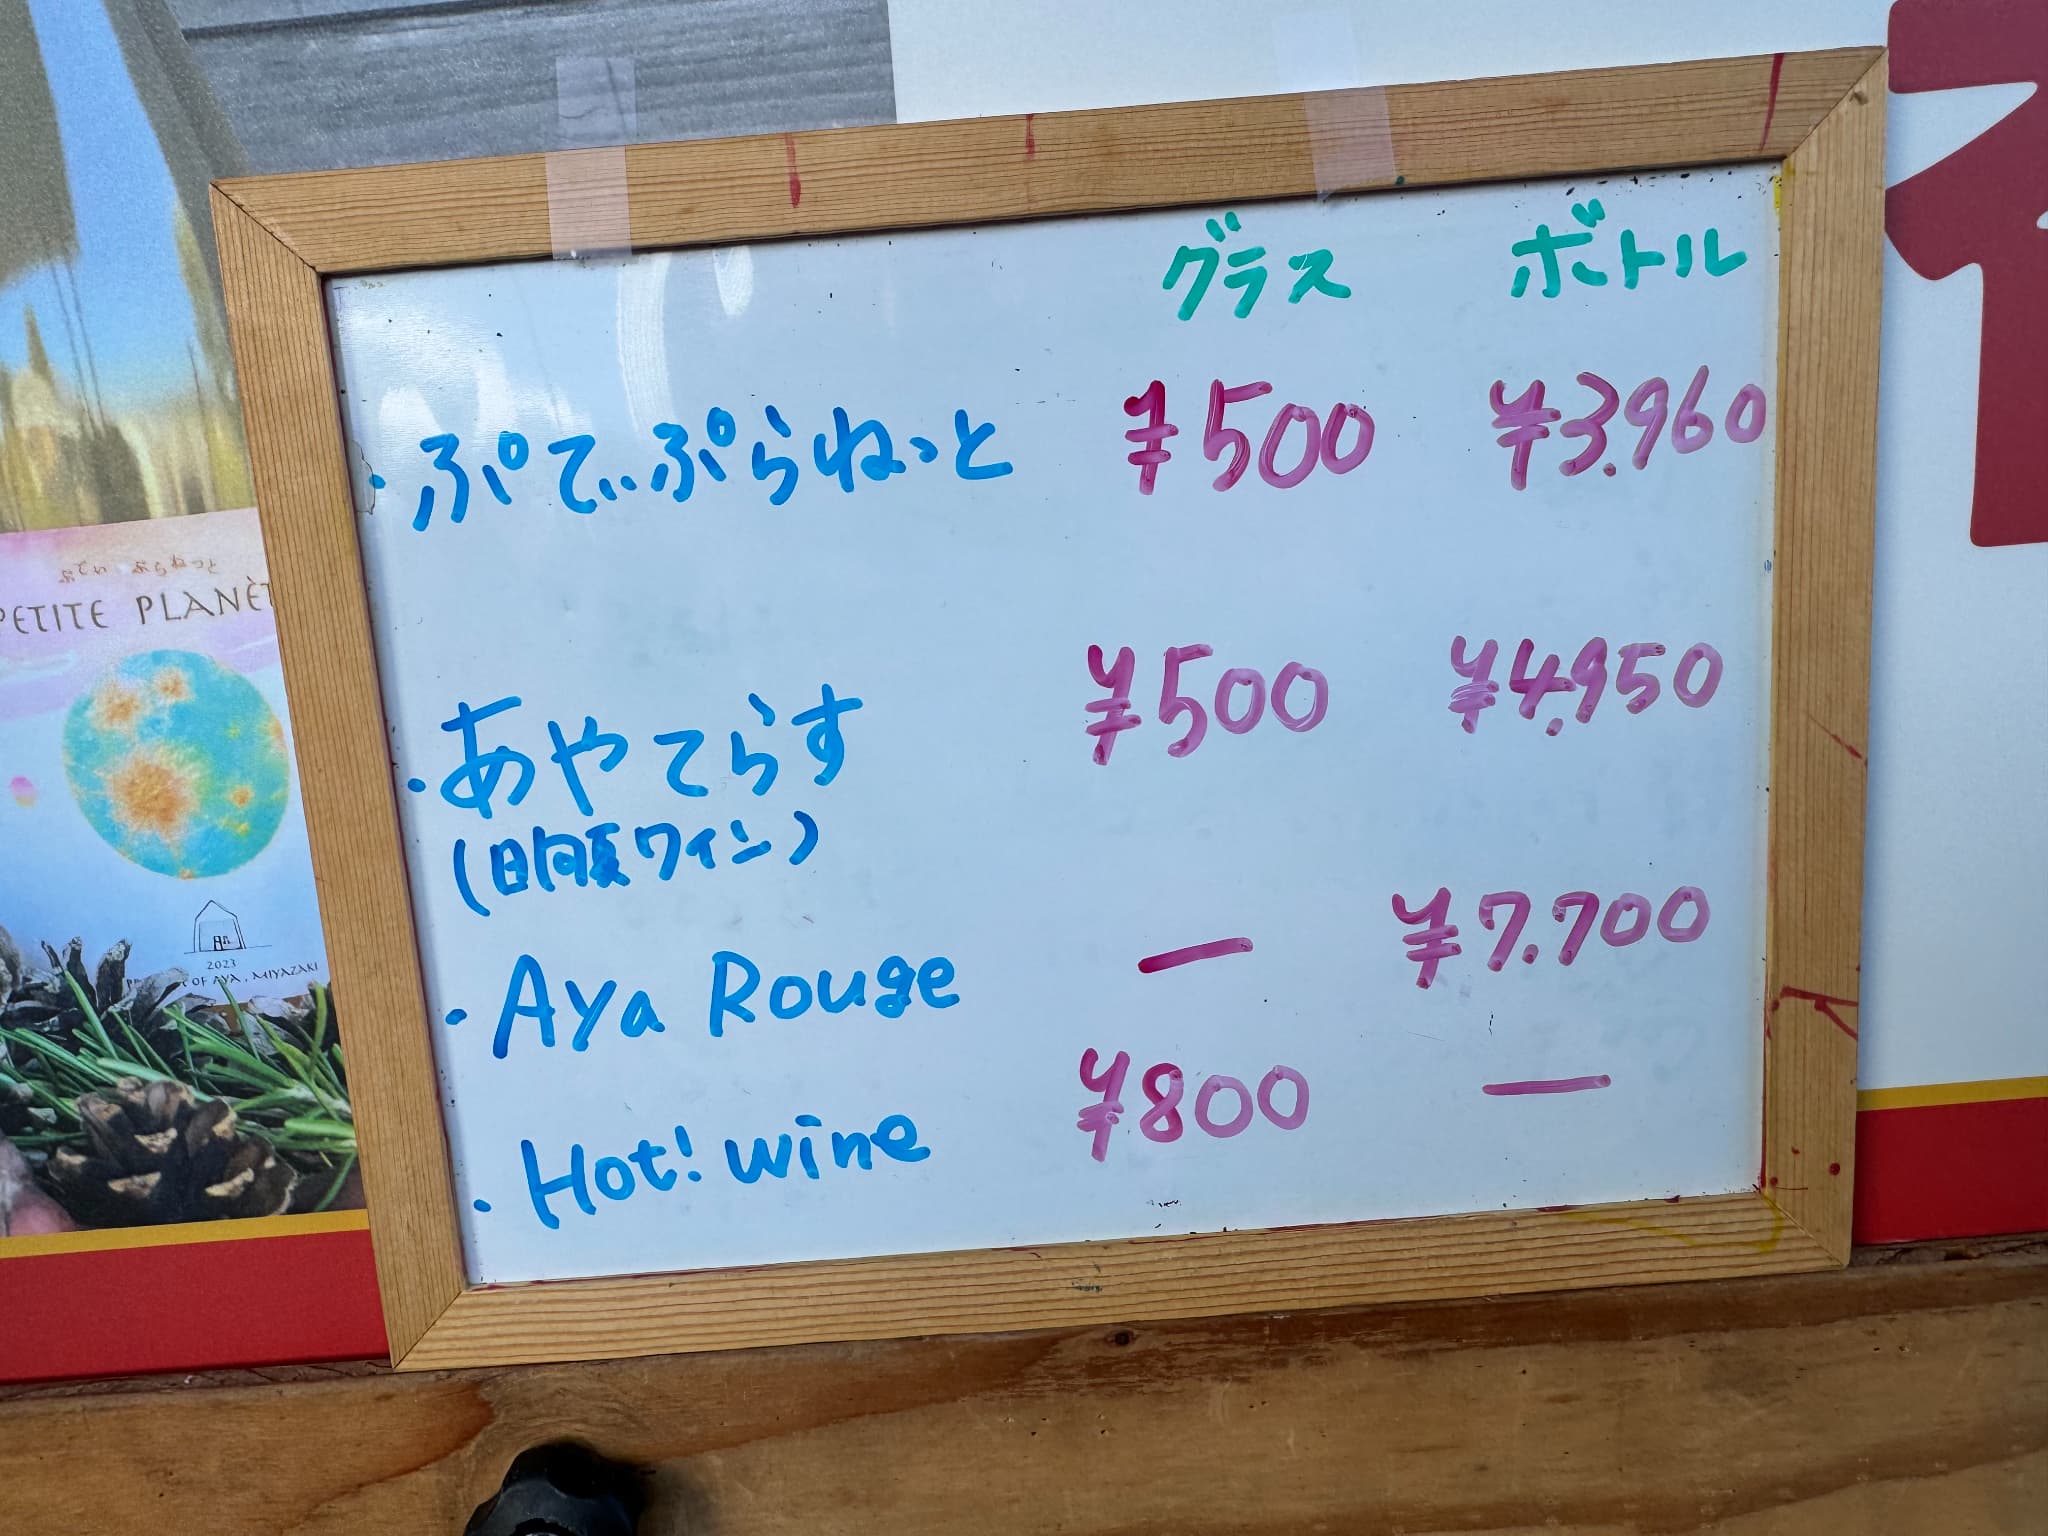 グラス ボトル
・ぷてぃぷらねっと ¥500 ¥3.960
・あやてらす ¥500 ¥4.950
(日向夏ワイン)
・Aya Rouge ー ¥7.700
・Hot! wine ¥800 ー
PETITE PLANÈT
2023
OF AYA, MIYAZAKI